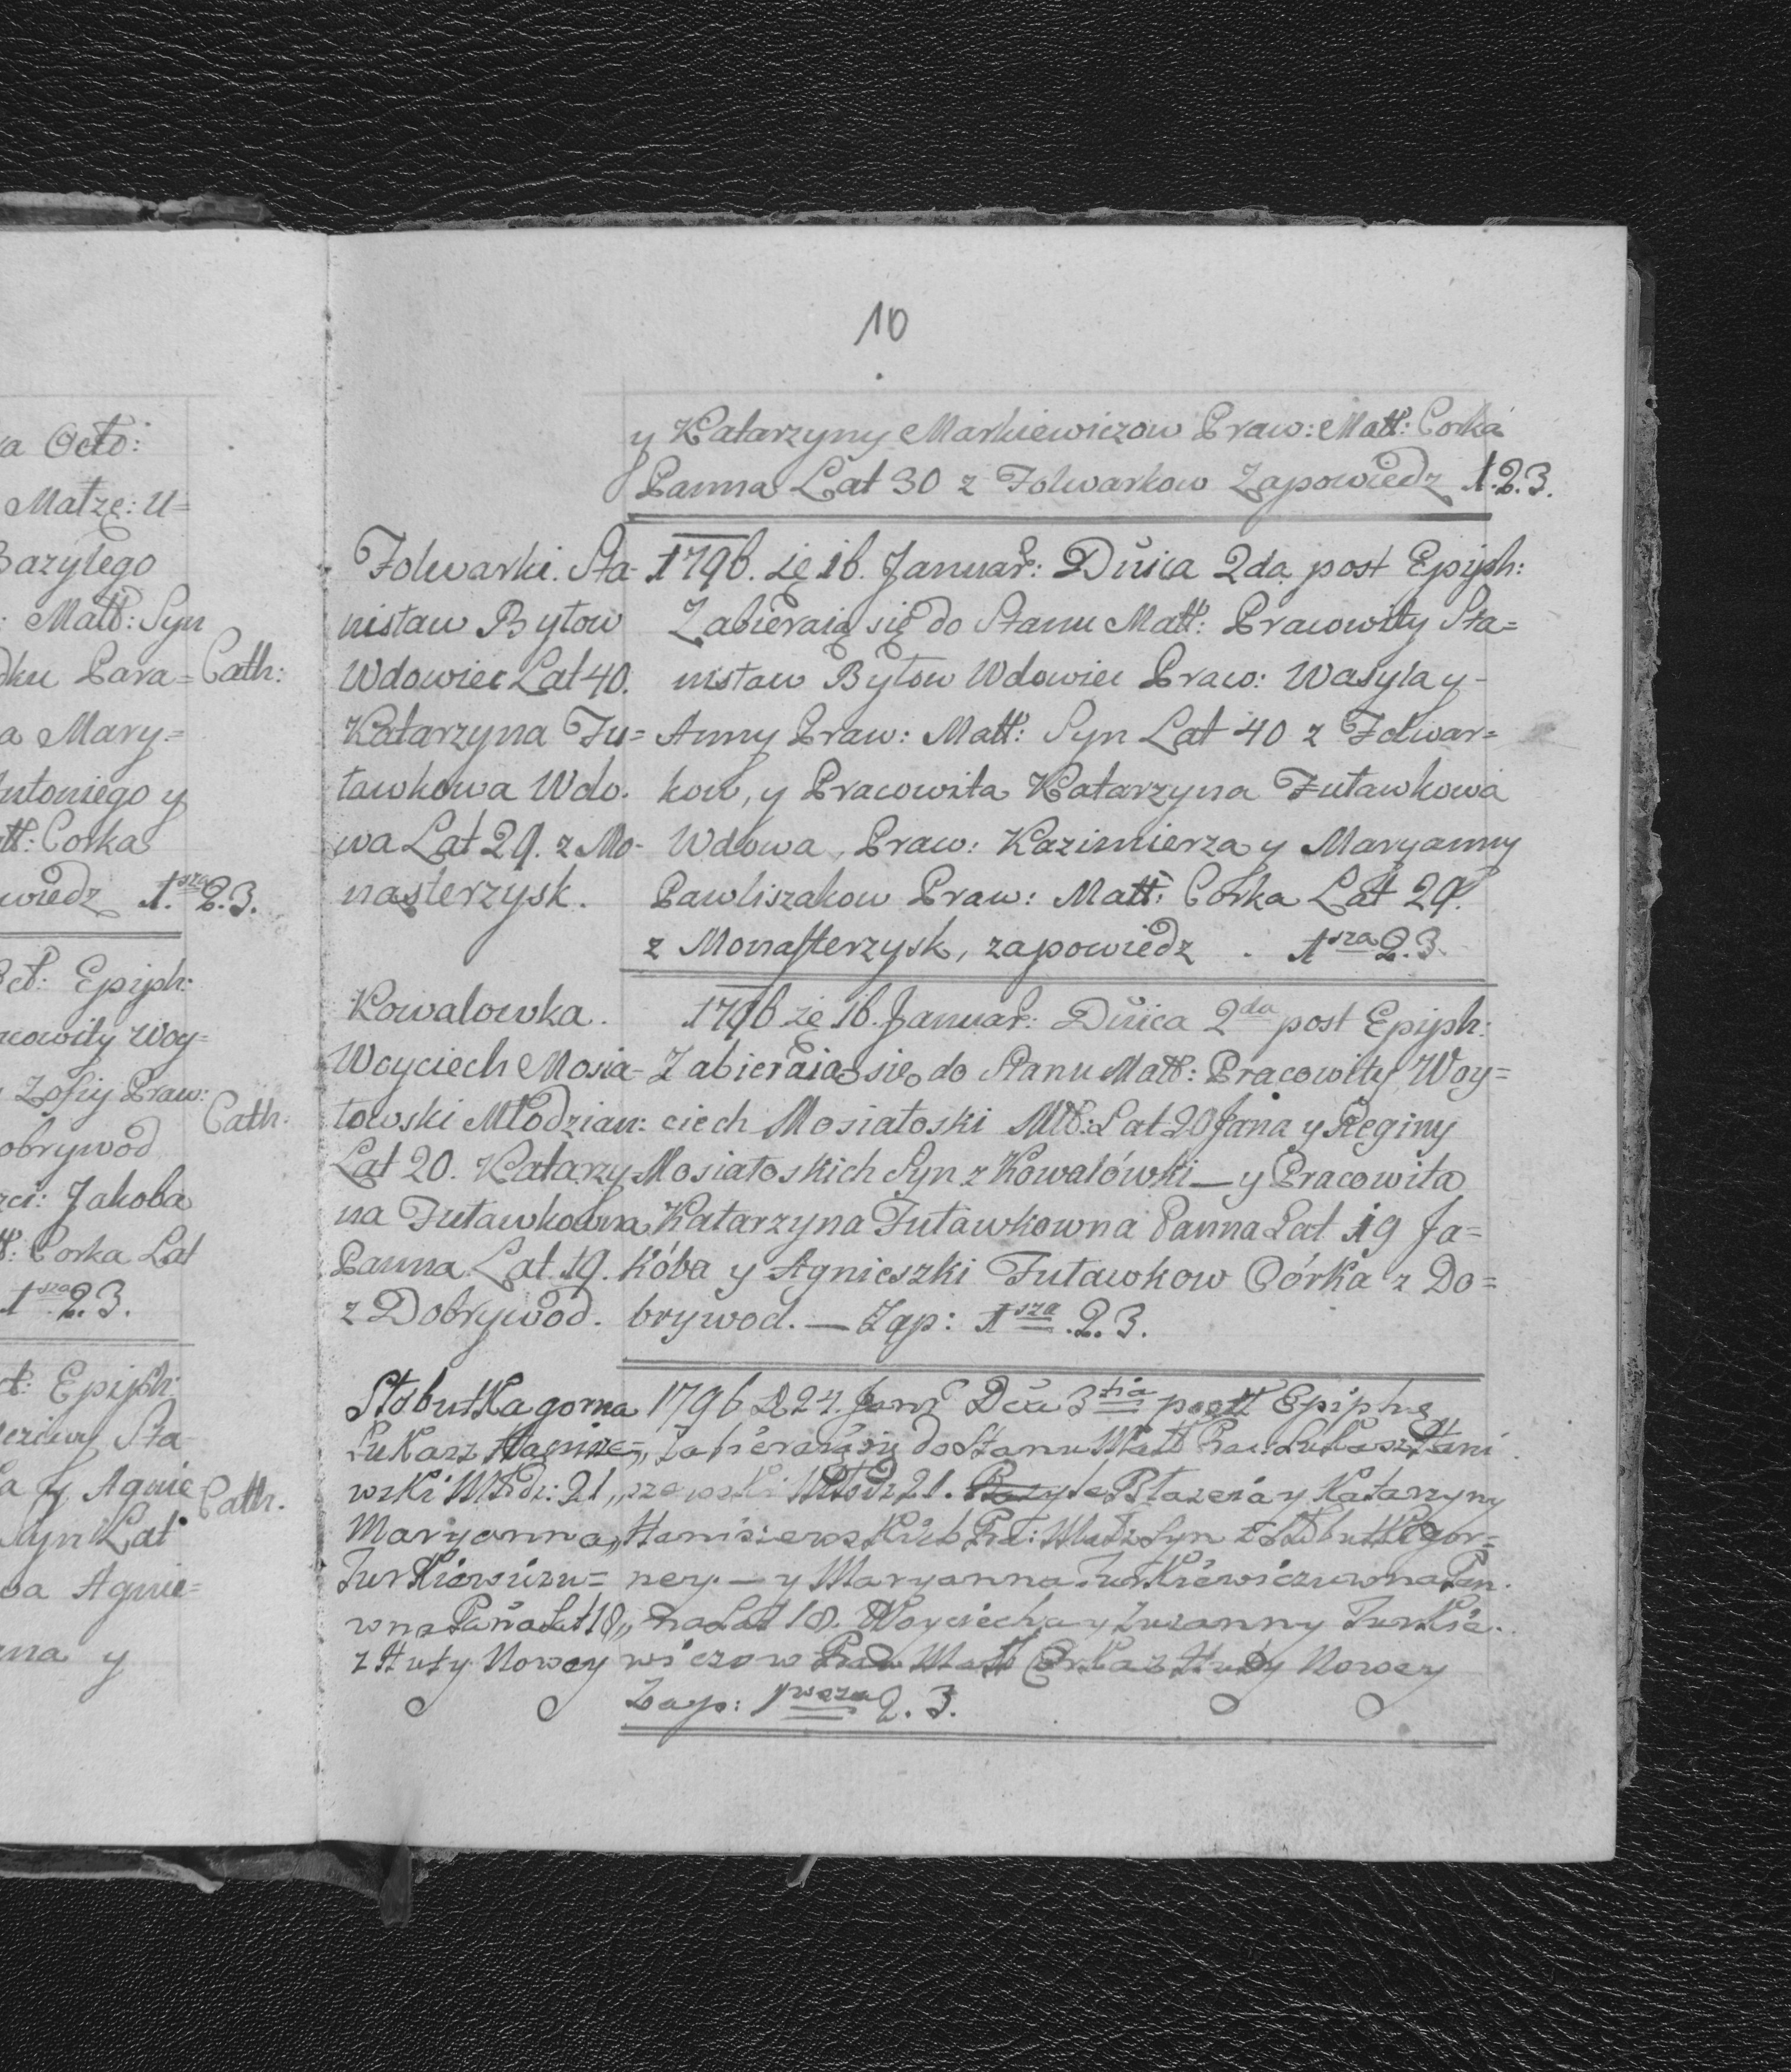 10
a Octo:
Matzę: U=
Bazylego
: Matł: Syn
dku Para=
Cath:
a Mary=
Antoniego y
tł: Corka
wiedz 1.sza 2.3.
Oct: Epiph:
acowity Woy=
Zofiy Praw:
Cath.
obrywod
rci: Jakoba
tł: Corka Lat
1sza 2.3.
ct: Epiph:
Sta
a y Agnie
Cath.
Syn Lat
wa Agnie=
na y
y Katarzyny Markiewiczow Praw: Matł: Corka
Panna Lat 30 z Folwarkow Zapowiedz 1.2.3.
Folwarki. Sta-
nisław Bytow
Wdowiec Lat 40.
Katarzyna Fu=
tawkowa Wdo.
wa Lat 29. z Mo-
nasterzysk.
1796. że 16. Januar: Dnica 2da post Epiph:
Zabieraią się do Stanu Matł: Pracowity Sta=
nisław Bytow Wdowiec Praw: Wasyla y -
Anny Praw: Matł: Syn Lat 40 z Folwar=
kow, y Pracowita Katarzyna Futawkowa
Wdowa, Praw: Kazimierza y Maryanny
Pawliszakow Praw: Matł: Corka Lat 29.
z Monasterzysk, zapowiedz . 1sza 2.3.
Kowalowka.
Woyciech Mosia-
towski Młodzian:
Lat 20. Katarzy-
na Futawkowna
Panna Lat 19.
z Dobrywod.
1796 że 16. Januar: Dnica 2da post Epiph:
Zabieraią się do Stanu Matł: Pracowity Woy=
ciech Mosiatoski Mło: Lat 20 Jana y Reginy
Mosiatoskich Syn z Kowalówki — y Pracowita
Katarzyna Futawkowna Panna Lat 19 Ja=
kóba y Agnieszki Futawkow Córka z Do=
brywod. — Zap: 1sza .2.3.
Stobutka gorna
Łukasz Hanisze=
wski Młodz: 21 „
Maryanna „
Turkiewiczu=
wna Pana Lat 18 „
z Huty Nowey
1796 D 24. Janr Dca 3tia post Epiphę
Zabieraią się do Stanu Matł Pra: Łukasz Hani
szewski Młodz 21. Błażeia y Katarzyny
Haniszewskich Pra: Matż Syn z Stobutki gor=
ney. — y Maryanna Turkiewiczuwna Pan.
na Lat 18. Woyciecha y Zuzanny Turkie.
wiczow Praw Matł Corka z Huty Nowey
Zap: 1wsza 2. 3.